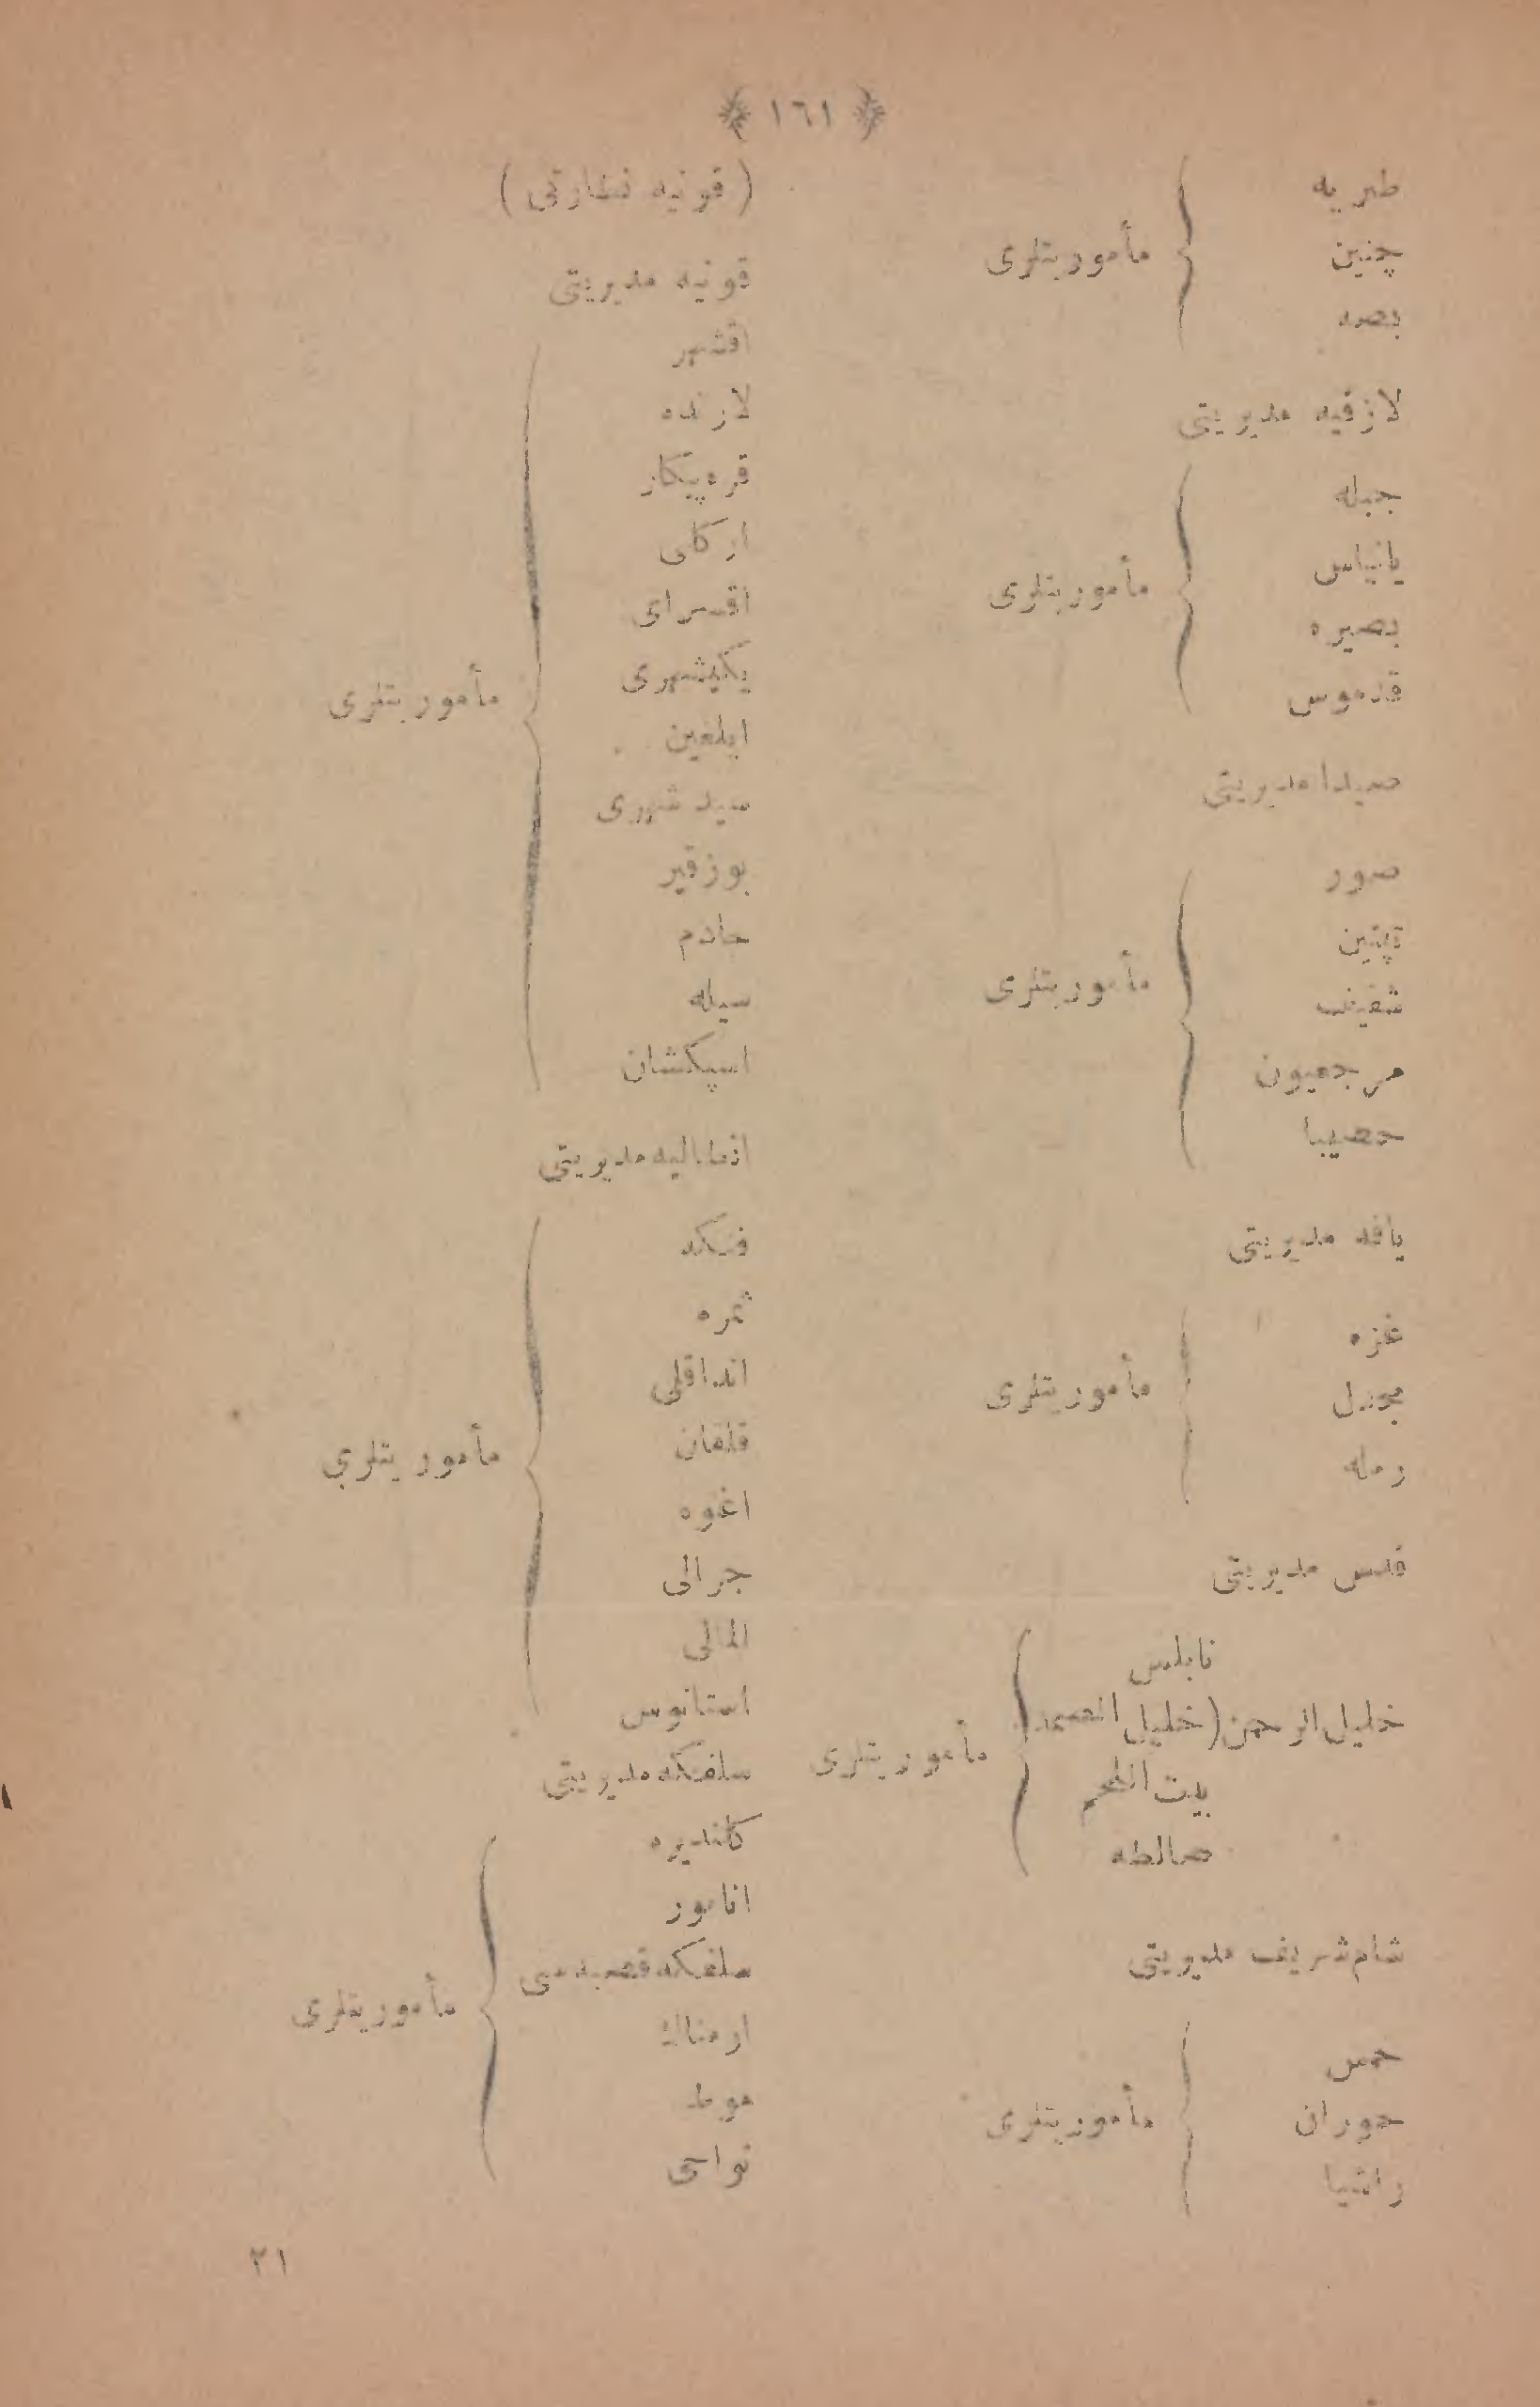 ﴿ ١٦١ ﴾
طبريه
چنين
بصه
مأموريتلری
لازقيه مديريتی
جبله
بانياس
بصيره
قدموس
مأموريتلری
صيدا مديريتی
صور
تپنين
شقيف
مرجعيون
حصيبا
مأموريتلری
يافه مديريتی
غزه
مجدل
رمله
مأموريتلری
قدس مديريتی
نابلس
خليل‌الرحمن (خليل
بيت‌اللحم
صالطه
مأموريتلری
شام‌شريف مديريتی
حمص
حوران
راشيا
مأموريتلری
( قونيه نظارتی )
قونيه مديريتی
اقشهر
لارنده
قره‌پيكار
اركلی
اقسرای
يكيشهری
ايلغين
سيدشهری
بوزقير
حادم
سيله
اسپكشان
مأموريتلری
انطاليه مديريتی
فنكه
ثمره
انداقلی
قلقان
اغوه
جرالی
المالی
استانوس
مأموريتلری
سلفكه مديريتی
كانديره
انامور
سلفكه قصبه‌سی
ارمناك
موط
نواحی
مأموريتلری
٢١